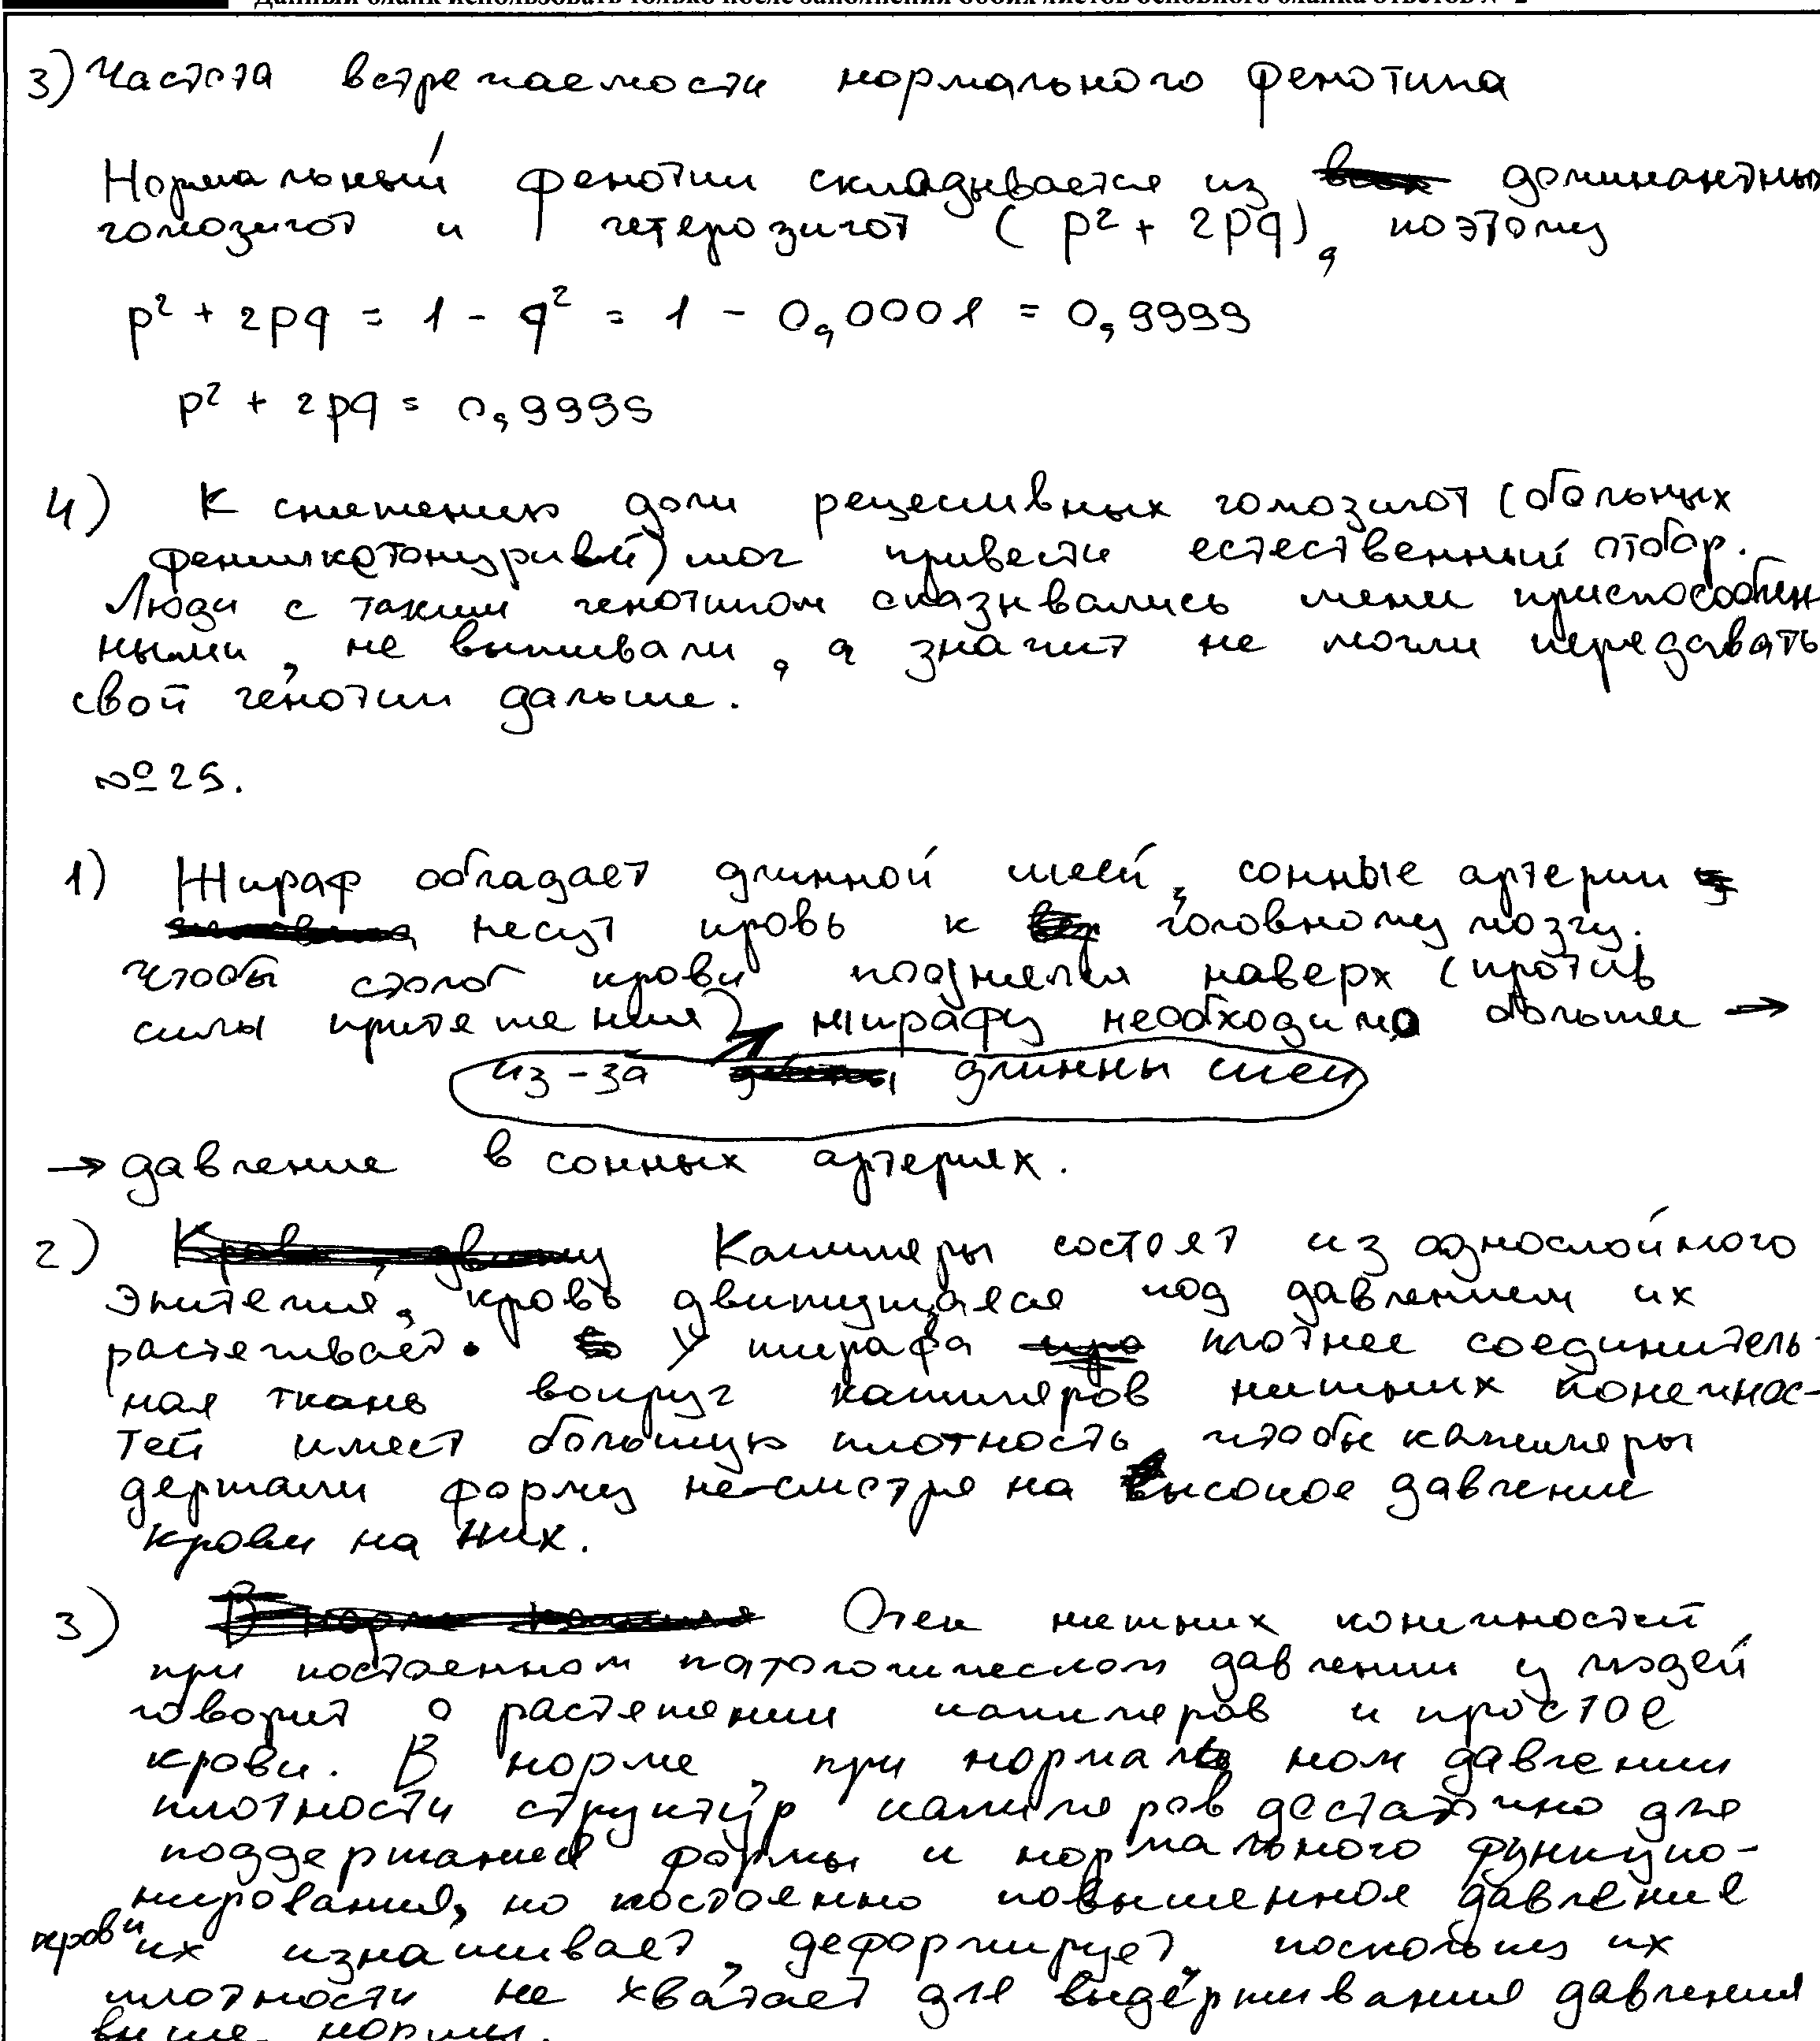 Данный бланк использовать только после заполнения обоих листов основного бланка ответов № 2
3) Частота встречаемости нормального фенотипа
Нормальный фенотип складывается из доминантных
гомозигот и гетерозигот (p² + 2pq), поэтому
p² + 2pq = 1 - q² = 1 - 0,0001 = 0,9999
p² + 2pq = 0,9999
4) К снижению доли рецессивных гомозигот (больных
фенилкетонурией) мог привести естественный отбор.
Люди с таким генотипом оказывались менее приспособлен-
ными, не выживали, а значит не могли передавать
свой генотип дальше.
№ 25.
1) Жираф обладает длинной шеей, сонные артерии
несут кровь к головному мозгу.
Чтобы столб крови поднялся наверх (против
силы притяжения) жирафу необходимо больше →
из-за длинны шеи
→ давление в сонных артериях.
2) Капилляры состоят из однослойного
эпителия, кровь движущаяся под давлением их
растягивает. У жирафа плотнее соединитель-
ная ткань вокруг капилляров нижних конечнос-
тей имеет большую плотность, чтобы капилляры
держали форму не смотря на высокое давление
крови на них.
3) Отек нижних конечностей
при постоянном патологическом давлении у людей
говорит о растяжении капилляров и простое
крови. В норме, при нормальном давлении
плотности структур капилляров достаточно для
поддержания формы и нормального функцио-
нирования, но постоянно повышенное давление
крови их изнашивает, деформирует, поскольку их
плотности не хватает для выдерживания давления
выше нормы.